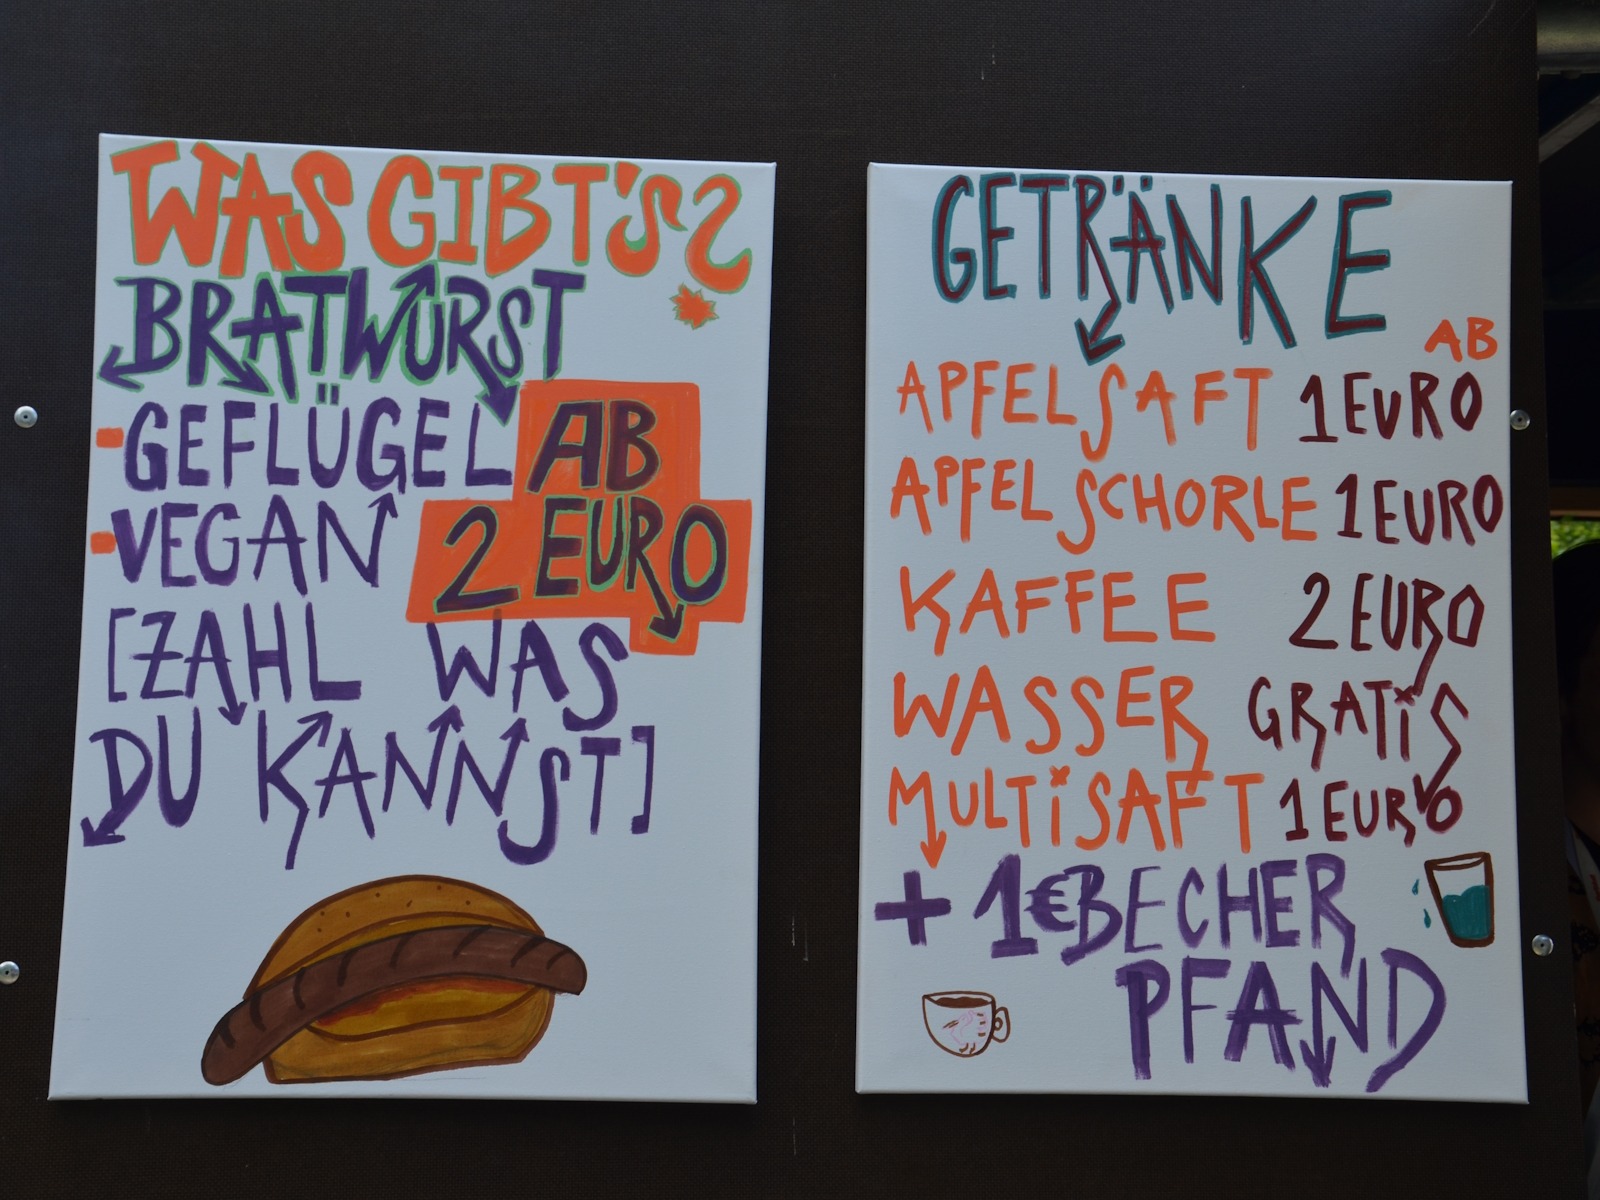 WAS GIBT'S?
BRATWURST
-GEFLÜGEL
-VEGAN
AB
2 EURO
[ZAHL WAS
DU KANNST]
GETRÄNKE
AB
APFELSAFT 1 EURO
APFELSCHORLE 1 EURO
KAFFEE 2 EURO
WASSER GRATIS
MULTISAFT 1 EURO
+ 1€ BECHER
PFAND